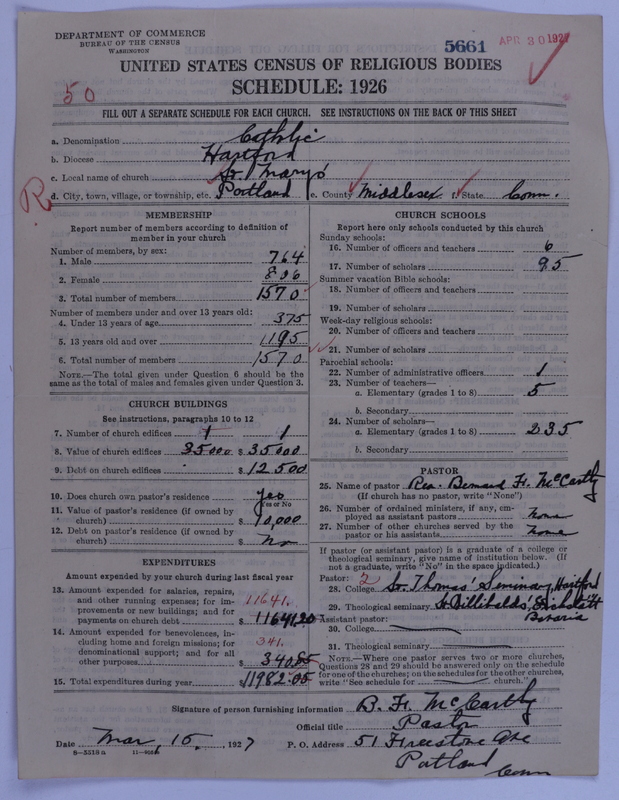 DEPARTMENT OF COMMERCE
BUREAU OF THE CENSUS
WASHINGTON
5661
APR 30 1927
UNITED STATES CENSUS OF RELIGIOUS BODIES
SCHEDULE: 1926
50
FILL OUT A SEPARATE SCHEDULE FOR EACH CHURCH. SEE INSTRUCTIONS ON THE BACK OF THIS SHEET
a. Denomination Catholic
b. Diocese Hartford
c. Local name of church St. Marys'
R
d. City, town, village, or township, etc. Portland e. County Middlesex f. State Conn.
MEMBERSHIP
Report number of members according to definition of
member in your church
Number of members, by sex:
1. Male 764
2. Female 806
3. Total number of members 1570
Number of members under and over 13 years old:
4. Under 13 years of age 375
5. 13 years old and over 1195
6. Total number of members 1570
NOTE.—The total given under Question 6 should be the
same as the total of males and females given under Question 3.
CHURCH BUILDINGS
See instructions, paragraphs 10 to 12
7. Number of church edifices 1 1
8. Value of church edifices 35000 $ 35000
9. Debt on church edifices $ 12500
10. Does church own pastor's residence Yes
Yes or No
11. Value of pastor's residence (if owned by
church) $ 10,000
12. Debt on pastor's residence (if owned by
church) $ no
EXPENDITURES
Amount expended by your church during last fiscal year
13. Amount expended for salaries, repairs,
and other running expenses; for im-
provements or new buildings; and for
payments on church debt 11641. $ 11641.20
14. Amount expended for benevolences, in-
cluding home and foreign missions; for
denominational support; and for all
other purposes 341. $ 340.85
15. Total expenditures during year $ 11982.05
CHURCH SCHOOLS
Report here only schools conducted by this church
Sunday schools:
16. Number of officers and teachers 6
17. Number of scholars 95
Summer vacation Bible schools:
18. Number of officers and teachers
19. Number of scholars
Week-day religious schools:
20. Number of officers and teachers
21. Number of scholars
Parochial schools:
22. Number of administrative officers 1
23. Number of teachers—
a. Elementary (grades 1 to 8) 5
b. Secondary
24. Number of scholars—
a. Elementary (grades 1 to 8) 235
b. Secondary
PASTOR
25. Name of pastor Rev. Bernard Fr. McCarthy
(If church has no pastor, write "None")
26. Number of ordained ministers, if any, em-
ployed as assistant pastors none
27. Number of other churches served by the
pastor or his assistants none
If pastor (or assistant pastor) is a graduate of a college or
theological seminary, give name of institution below. (If
not a graduate, write "No" in the space indicated.)
Pastor: 2
28. College St. Thomas' Seminary, Hartford
29. Theological seminary St. Billibalds', Eichstätt
Bavaria
Assistant pastor:
30. College
31. Theological seminary
NOTE.—Where one pastor serves two or more churches,
Questions 28 and 29 should be answered only on the schedule
for one of the churches; on the schedules for the other churches,
write "See schedule for church."
Signature of person furnishing information B. Fr. McCarthy
Official title Pastor
Date Mar, 15, 1927 P. O. Address 51 Freestone Ave
Portland
Conn
8—3518 a